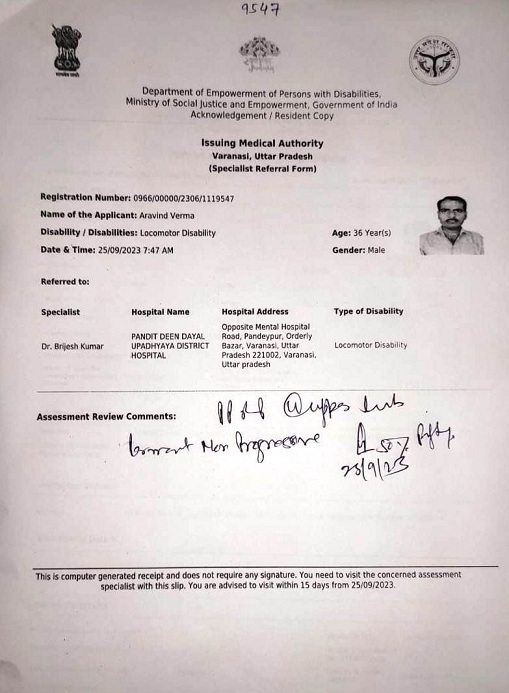 9547
Department of Empowerment of Persons with Disabilities,
Ministry of Social Justice and Empowerment, Government of India
Acknowledgement / Resident Copy
Issuing Medical Authority
Varanasi, Uttar Pradesh
(Specialist Referral Form)
Registration Number: 0966/00000/2306/1119547
Name of the Applicant: Aravind Verma
Disability / Disabilities: Locomotor Disability Age: 36 Year(s)
Date & Time: 25/09/2023 7:47 AM Gender: Male
Referred to:
Specialist Hospital Name Hospital Address Type of Disability
Dr. Brijesh Kumar
PANDIT DEEN DAYAL
UPADHYAYA DISTRICT
HOSPITAL
Opposite Mental Hospital
Road, Pandeypur, Orderly
Bazar, Varanasi, Uttar
Pradesh 221002, Varanasi,
Uttar pradesh
Locomotor Disability
Assessment Review Comments:
50%
25/9/23
This is computer generated receipt and does not require any signature. You need to visit the concerned assessment
specialist with this slip. You are advised to visit within 15 days from 25/09/2023.